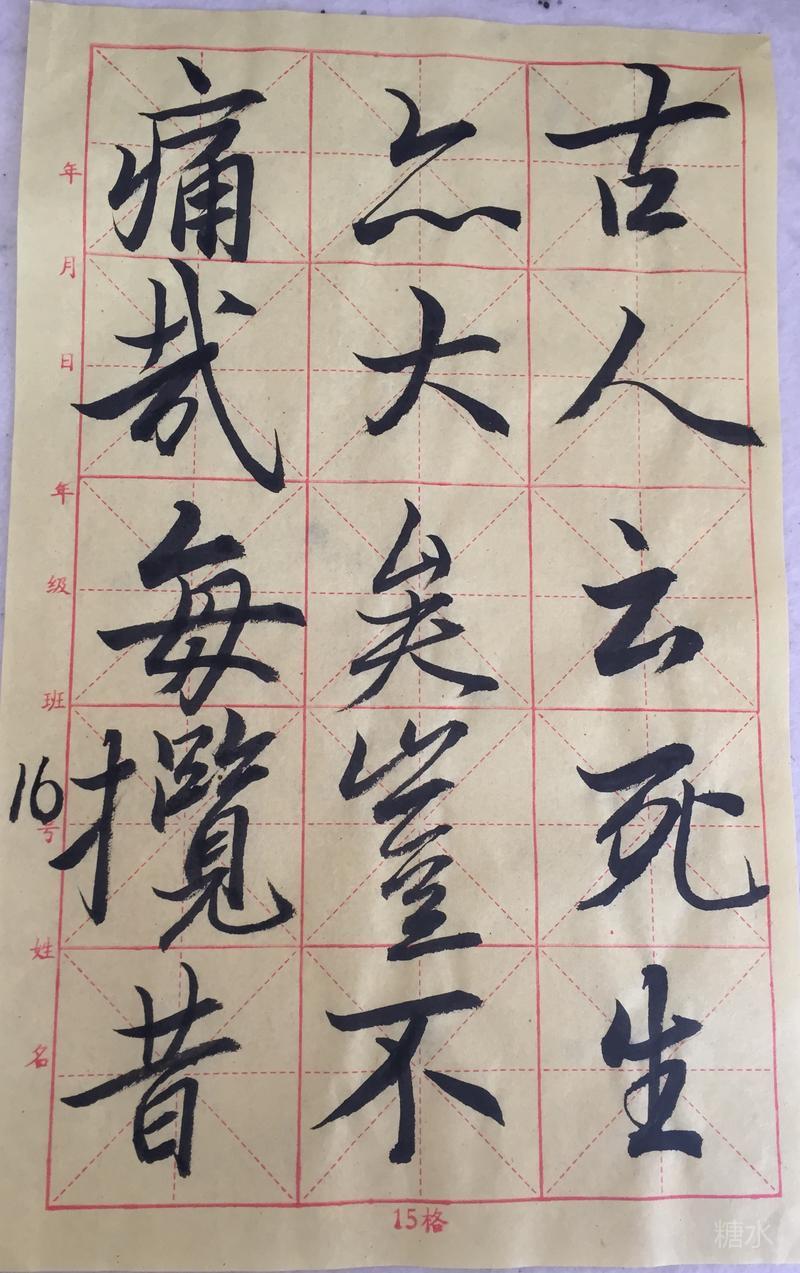 古人云死生
亦大矣豈不
痛哉每攬昔
年月日
年级班16号
姓名
15格
糖水